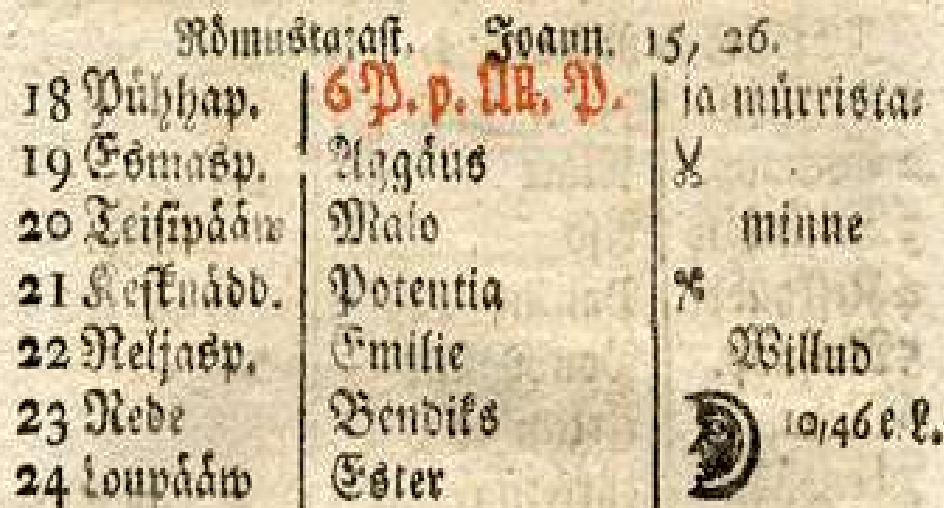 Römustajast. Joann. 15, 26.
18 Pühhap. 6 P. p. ül. P. ja mürrista⸗
19 Esmasp. Aggäus
20 Teisipääw Malo minne
21 Kesknädd. Potentia
22 Neljasp. Emilie Willud
23 Rede Bendiks 10,46 e. L.
24 Loupääw Ester